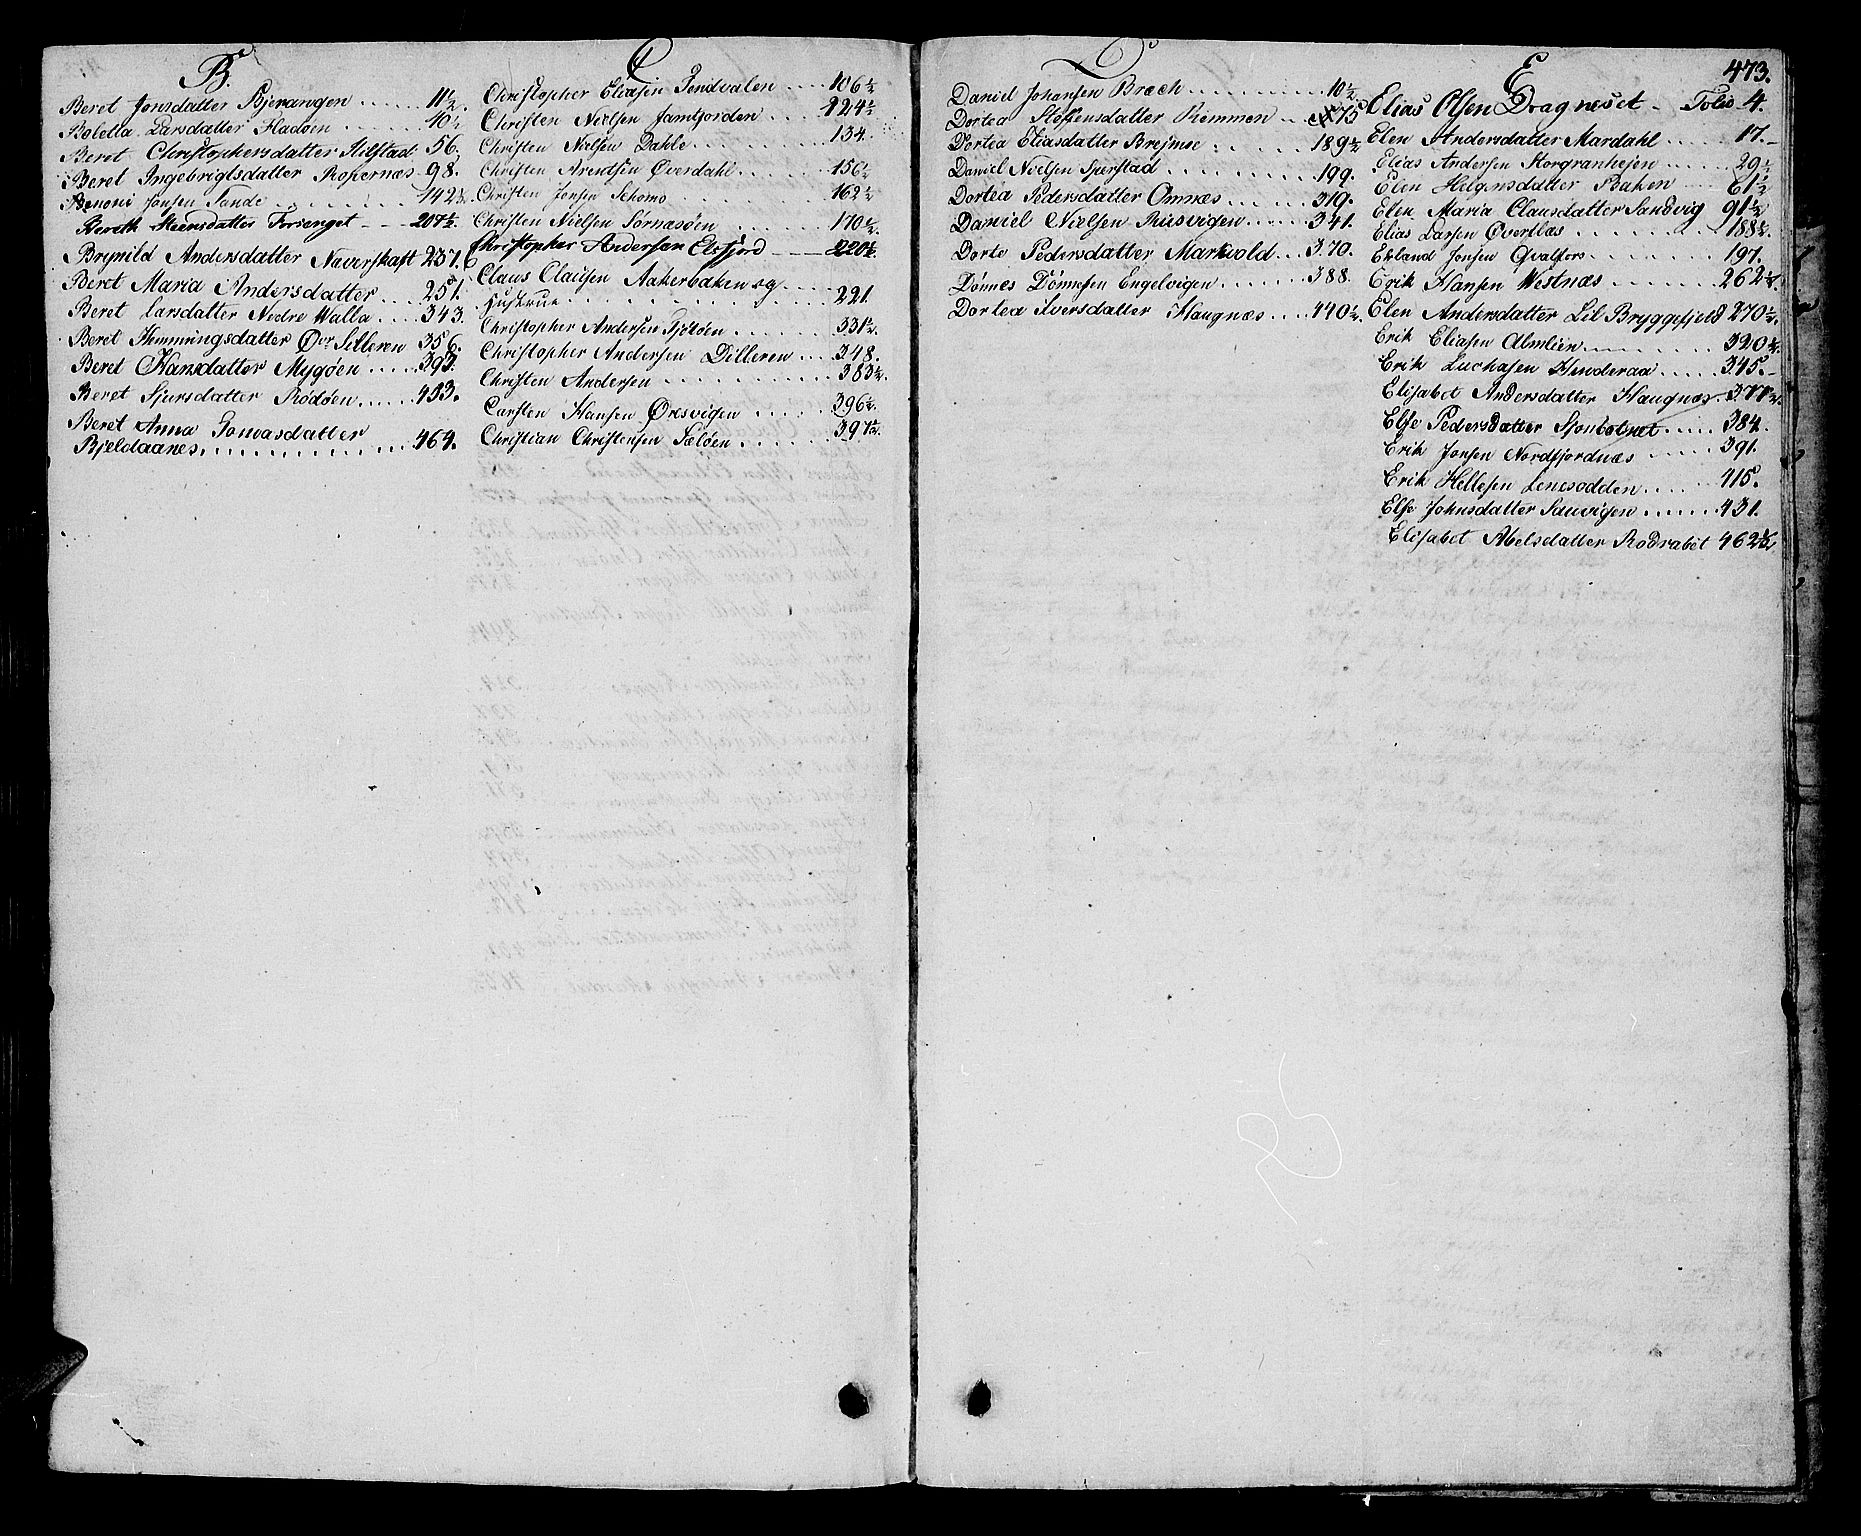 B.
Beret Jonsdatter Bjerangen ..... 11½.
Boletta Larsdatter Fladøen ..... 40½
Beret Christophersdatter Hilstad 56.
Beret Ingebrigtsdatter Røsernæs 98.
Benoni Jonsen Sande ..... 142½
Bereth Steensdatter Forsanget --- 207½.
Brynild Andersdatter Naverskaft 237.
Beret Maria Andersdatter .... 257.
Beret Larsdatter Nedre Walla .... 343.
Beret Hemmingsdatter Øvr Silleren 356.
Beret Hansdatter Mygøen ..... 393.
Beret Sjursdatter Rødøen ..... 403.
Beret Anna Tomasdatter
Bjeldaanes ............ 464.
C
Christopher Eliasen Sendvalen .... 106½
Christen Nielsen Jamtjorden .... 124½
Christen Nielsen Dahle ........ 134.
Christen Arentsen Øverdahl ..... 156½
Christen Jensen Schomo ........ 162½
Christen Nielsen Sørnæsøen ..... 170½
Christopher Andersen Elsfjord --- 220½
Claus Clausen Aakerbaken og
Hustrue .............. 221.
Christopher Andersen Tjøtøen .... 331½.
Christopher Andersen Dilleren ... 348.
Christen Andersen ........... 383½.
Carsten Hansen Øresvigen ..... 396½.
Christian Christensen Sæløen ..... 397½.
D
Daniel Johansen Bræch ......... 10½
Dortea Steffensdatter Remmen ... 75
Dortea Eliasdatter Brejmoe ....... 189½
Daniel Nielsen Sperstad ......... 199.
Dortea Pedersdatter Omnæs ....... 319.
Daniel Nielsen Riisvigen ....... 341.
Dorte Pedersdatter Markvold ... 370.
Dønnes Dønnesen Engelvigen ..... 388.
Dortea Iversdatter Haugnæs ... 440½.
473.
E
Elias Olsen Dragneset - Folio 4.
Elen Andersdatter Mardahl ..... 17.
Elias Andersen Storgranhejen ... 29½
Elen Helgensdatter Baken ..... 61½
Elen Maria Clausdatter Sandvig 91½
Elias Larsen Øverlæs ......... 188½.
Edland Jensen Qvalfors ........ 197.
Erik Hansen Westnæs ........ 262½
Elen Andersdatter Lil Bryggefjeld 270½.
Erik Eliasen Almlien ......... 320½.
Erik Luchasen Hunderaa ..... 345.
Elisabet Andersdatter Haugnæs 377½.
Else Pedersdatter Sjonbotnet ..... 384.
Erik Jonsen Nordfjordnæs ..... 391.
Erik Hellesen Lenesodden ..... 415.
Else Johnsdatter Sauvigen ...... 431.
Elisabet Abelsdatter Rodrabet 462½